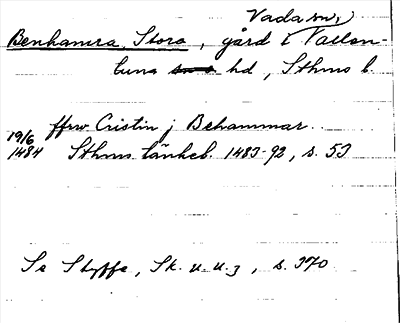 Vada sn,
Benhamra, Stora, gård i Vallen-
tuna hd, Sthms l.
ffrw Cristin j Behammar.
19/6
1484 Sthms tänkeb. 1483-92, s. 53
Se Styffe, Sk. u. u. 3, s. 370